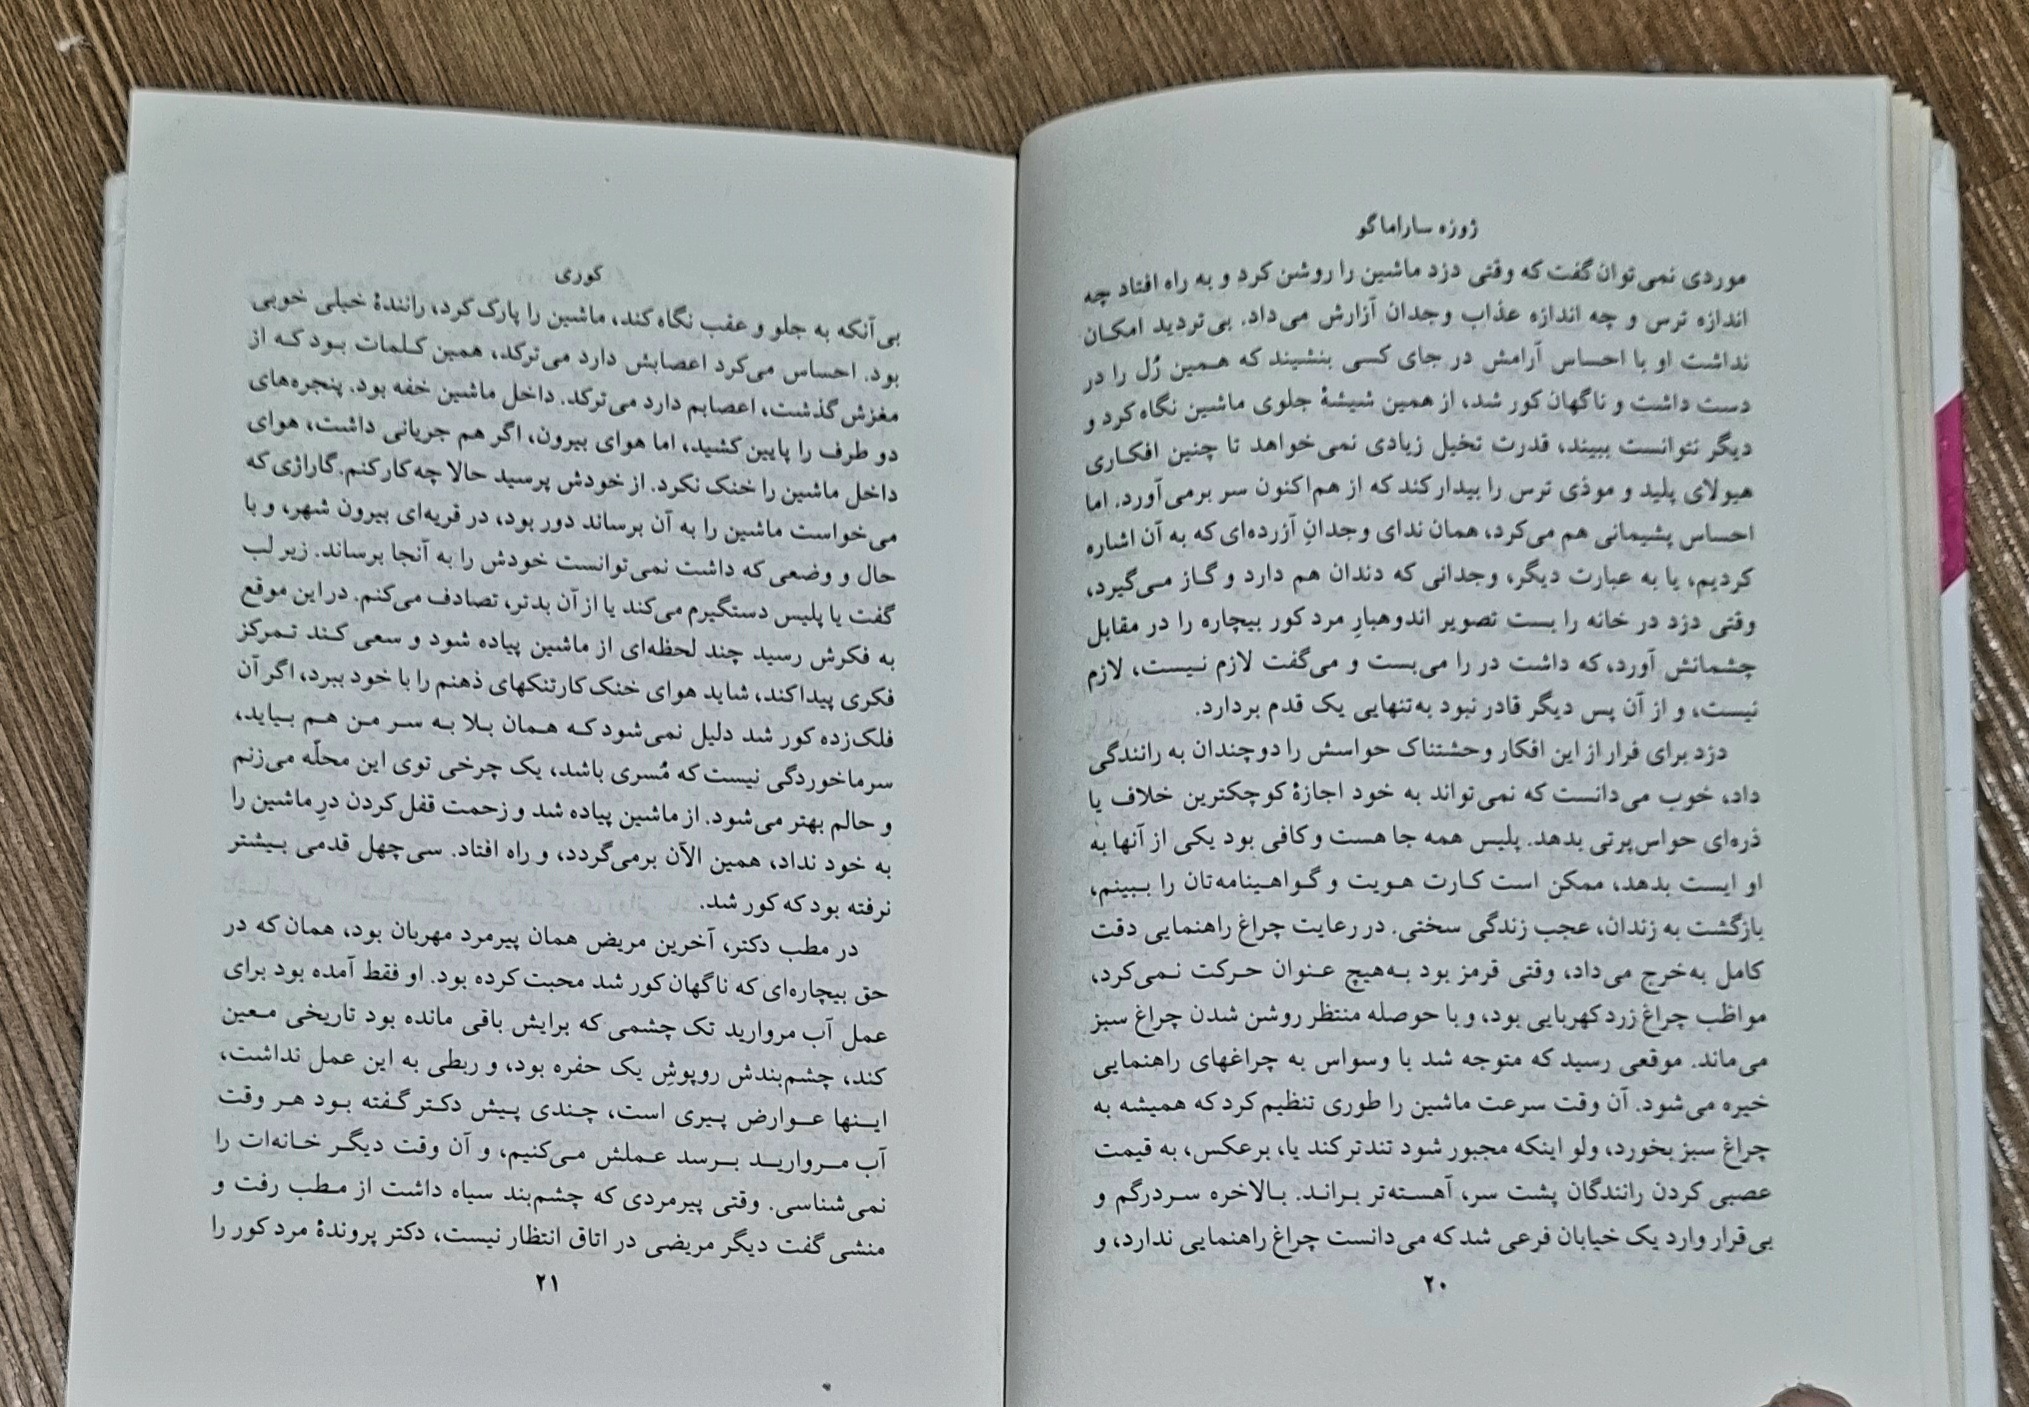 ژوزه ساراماگو
موردی نمی‌توان گفت که وقتی دزد ماشین را روشن کرد و به راه افتاد چه
اندازه ترس و چه اندازه عذاب وجدان آزارش می‌داد. بی‌تردید امکان
نداشت او با احساس آرامش در جای کسی بنشیند که همین رُل را در
دست داشت و ناگهان کور شد، از همین شیشهٔ جلوی ماشین نگاه کرد و
دیگر نتوانست ببیند، قدرت تخیل زیادی نمی‌خواهد تا چنین افکاری
هیولای پلید و موذی ترس را بیدار کند که از هم‌اکنون سر برمی‌آورد. اما
احساس پشیمانی هم می‌کرد، همان ندای وجدانِ آزرده‌ای که به آن اشاره
کردیم، یا به عبارت دیگر، وجدانی که دندان هم دارد و گاز می‌گیرد،
وقتی دزد در خانه را بست تصویر اندوهبارِ مرد کور بیچاره را در مقابل
چشمانش آورد، که داشت در را می‌بست و می‌گفت لازم نیست، لازم
نیست، و از آن پس دیگر قادر نبود به‌تنهایی یک قدم بردارد.
دزد برای فرار از این افکار وحشتناک حواسش را دوچندان به رانندگی
داد، خوب می‌دانست که نمی‌تواند به خود اجازهٔ کوچکترین خلاف یا
ذره‌ای حواس‌پرتی بدهد. پلیس همه جا هست و کافی بود یکی از آنها به
او ایست بدهد، ممکن است کارت هویت و گواهینامه‌تان را ببینم،
بازگشت به زندان، عجب زندگی سختی. در رعایت چراغ راهنمایی دقت
کامل به‌خرج می‌داد، وقتی قرمز بود به‌هیچ عنوان حرکت نمی‌کرد،
مواظب چراغ زرد کهربایی بود، و با حوصله منتظر روشن شدن چراغ سبز
می‌ماند. موقعی رسید که متوجه شد با وسواس به چراغهای راهنمایی
خیره می‌شود. آن وقت سرعت ماشین را طوری تنظیم کرد که همیشه به
چراغ سبز بخورد، ولو اینکه مجبور شود تندتر کند یا، برعکس، به قیمت
عصبی کردن رانندگان پشت سر، آهسته‌تر براند. بالاخره سردرگم و
بی‌قرار وارد یک خیابان فرعی شد که می‌دانست چراغ راهنمایی ندارد، و
۲۰
کوری
بی‌آنکه به جلو و عقب نگاه کند، ماشین را پارک کرد، رانندهٔ خیلی خوبی
بود. احساس می‌کرد اعصابش دارد می‌ترکد، همین کلمات بود که از
مغزش گذشت، اعصابم دارد می‌ترکد. داخل ماشین خفه بود. پنجره‌های
دو طرف را پایین کشید، اما هوای بیرون، اگر هم جریانی داشت، هوای
داخل ماشین را خنک نکرد. از خودش پرسید حالا چه کار کنم. گاراژی که
می‌خواست ماشین را به آن برساند دور بود، در قریه‌ای بیرون شهر، و با
حال و وضعی که داشت نمی‌توانست خودش را به آنجا برساند. زیر لب
گفت یا پلیس دستگیرم می‌کند یا از آن بدتر، تصادف می‌کنم. در این موقع
به فکرش رسید چند لحظه‌ای از ماشین پیاده شود و سعی کند تمرکز
فکری پیدا کند، شاید هوای خنک کارتنکهای ذهنم را با خود ببرد، اگر آن
فلک‌زده کور شد دلیل نمی‌شود که همان بلا به سر من هم بیاید،
سرماخوردگی نیست که مُسری باشد، یک چرخی توی این محلّه می‌زنم
و حالم بهتر می‌شود. از ماشین پیاده شد و زحمت قفل کردن درِ ماشین را
به خود نداد، همین الآن برمی‌گردد، و راه افتاد. سی‌چهل قدمی بیشتر
نرفته بود که کور شد.
در مطب دکتر، آخرین مریض همان پیرمرد مهربان بود، همان که در
حق بیچاره‌ای که ناگهان کور شد محبت کرده بود. او فقط آمده بود برای
عمل آب مروارید تک چشمی که برایش باقی مانده بود تاریخی معین
کند، چشم‌بندش روپوشِ یک حفره بود، و ربطی به این عمل نداشت،
اینها عوارض پیری است، چندی پیش دکتر گفته بود هر وقت
آب مروارید برسد عملش می‌کنیم، و آن وقت دیگر خانه‌ات را
نمی‌شناسی. وقتی پیرمردی که چشم‌بند سیاه داشت از مطب رفت و
منشی گفت دیگر مریضی در اتاق انتظار نیست، دکتر پروندهٔ مرد کور را
۲۱